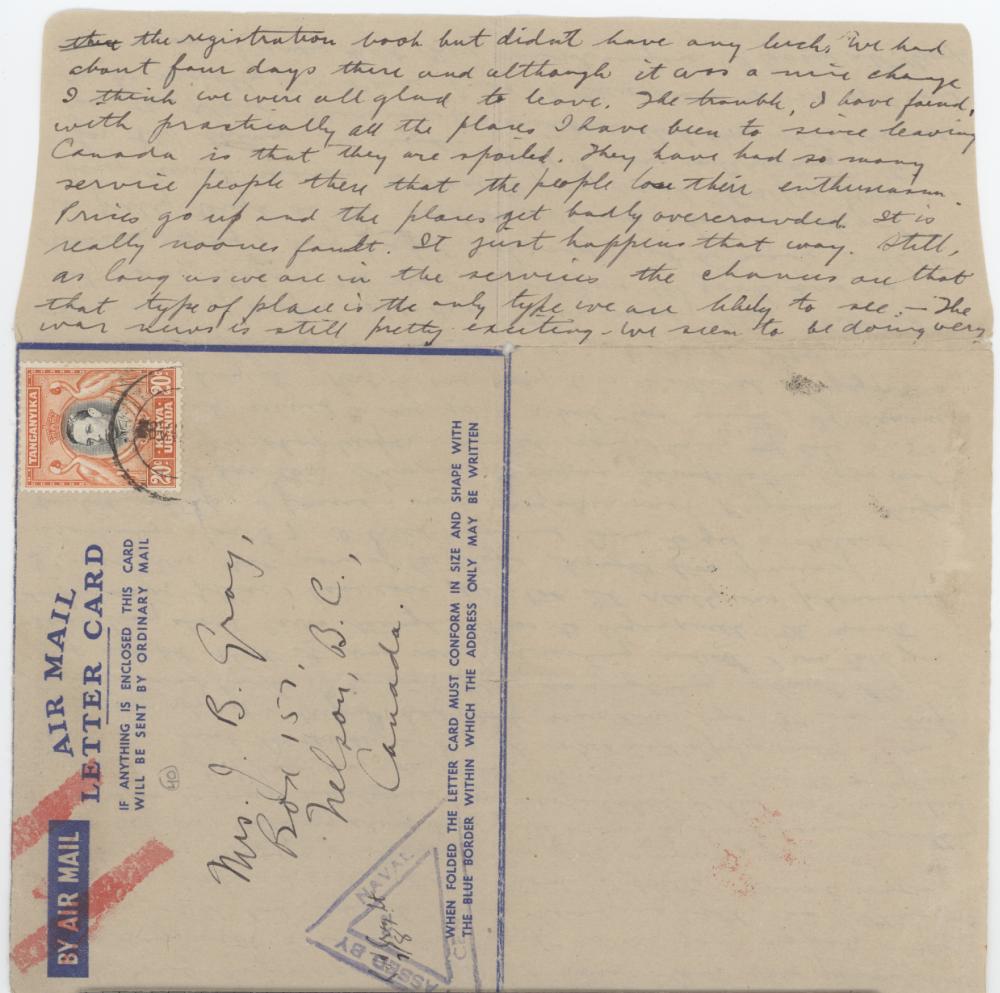 the registration book but didn't have any luck. We had
about four days there and although it was a nice change
I think we were all glad to leave. The trouble, I have found,
with practically all the places I have been to since leaving
Canada is that they are spoiled. They have had so many
service people there that the people lose their enthusiasm.
Prices go up and the places get badly overcrowded. It is
really noones fault. It just happens that way. Still,
as long as we are in the services the chances are that
that type of place is the only type we are likely to see. - The
war news is still pretty exciting - we seem to be doing very
TANGANYIKA
20c KENYA UGANDA 20c
AIR MAIL
LETTER CARD
IF ANYTHING IS ENCLOSED THIS CARD
WILL BE SENT BY ORDINARY MAIL
40
BY AIR MAIL
Mrs. J. B. Gray,
Box 157,
Nelson, B.C.,
Canada.
NAVAL
ASSED BY
WHEN FOLDED THE LETTER CARD MUST CONFORM IN SIZE AND SHAPE WITH
THE BLUE BORDER WITHIN WHICH THE ADDRESS ONLY MAY BE WRITTEN